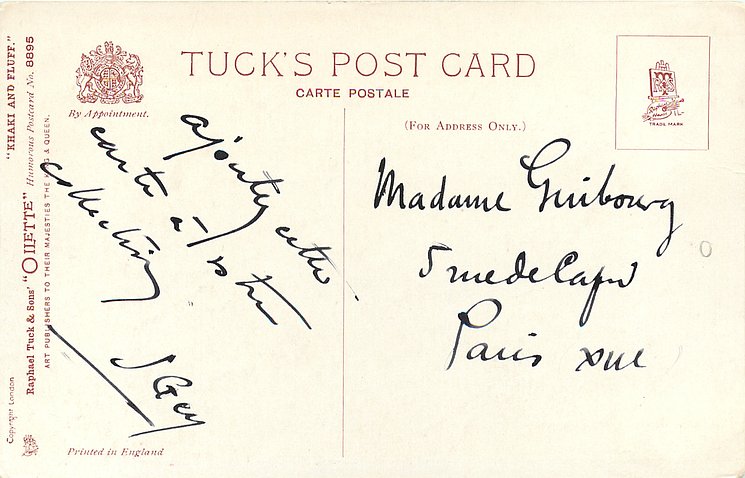 TUCK'S POST CARD
CARTE POSTALE
By Appointment.
(For Address Only.)
TRADE MARK
"KHAKI AND FLUFF."
Raphael Tuck & Sons' "OILETTE" Humorous Postcard No. 8895
ART PUBLISHERS TO THEIR MAJESTIES THE KING & QUEEN.
Copyright London
ajoutez cette
carte à votre
collection
Madame Guibourg
5 rue de
Paris
Printed in England